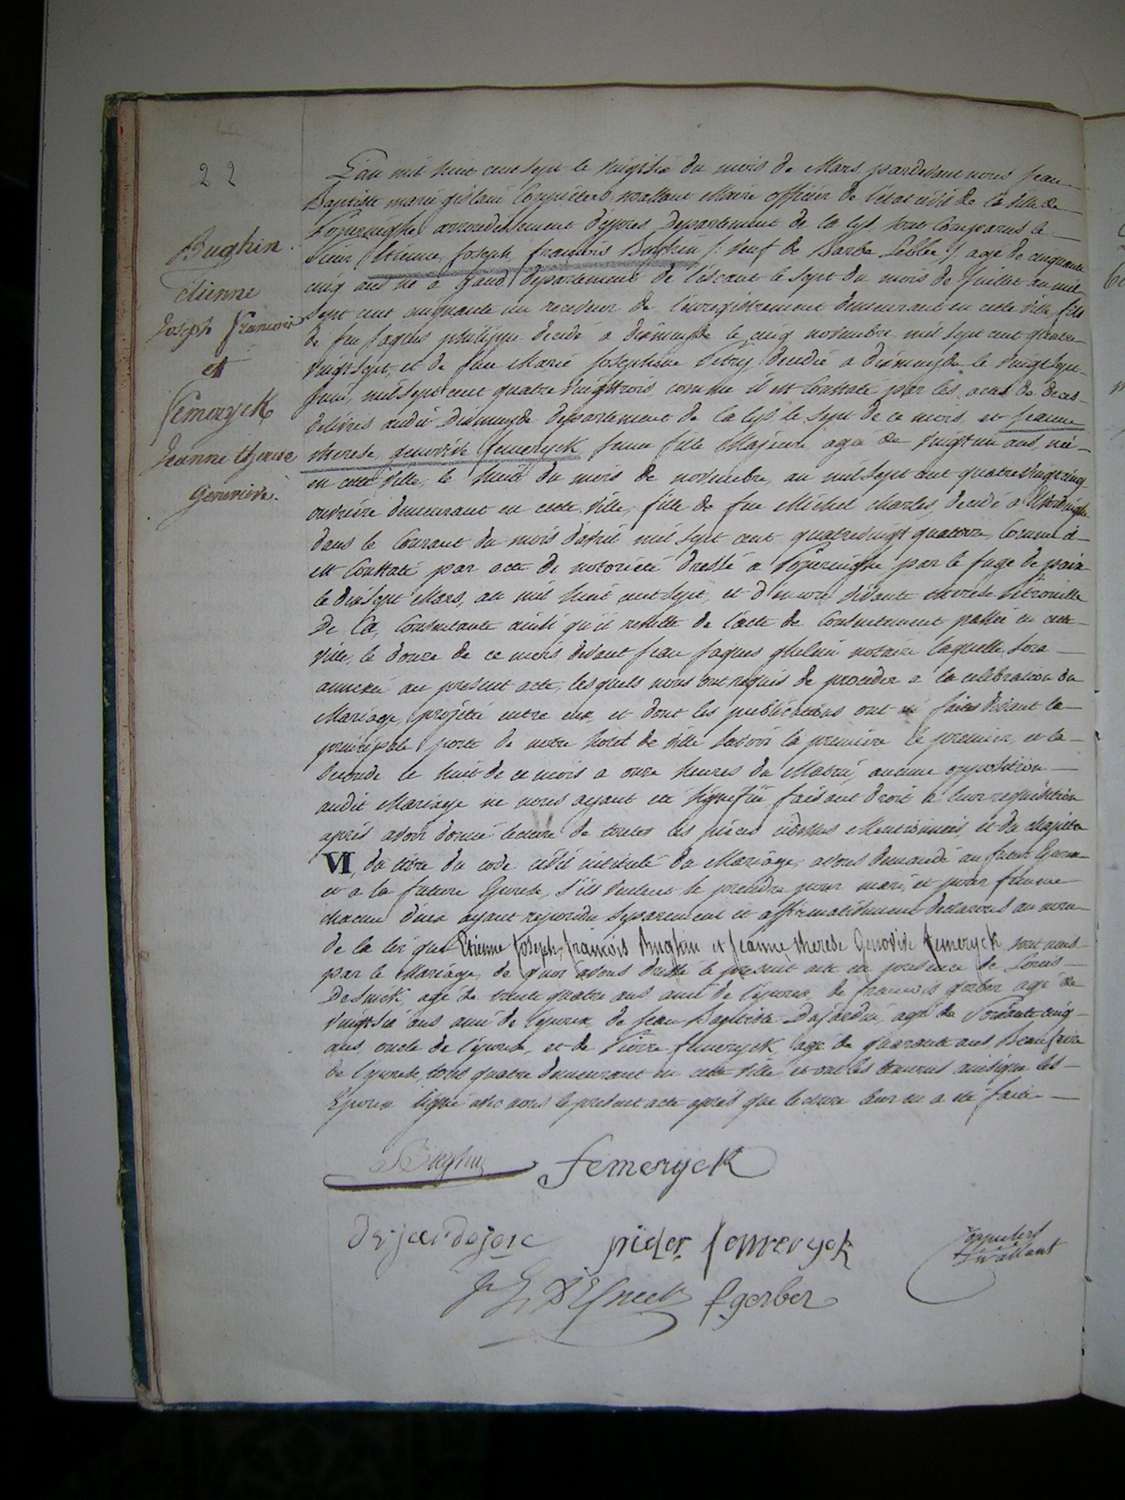 22
Bughin
Etienne
Joseph Francois
et
Femeryck
Jeanne therese
Genevieve.
L'an mil huit cent sept le vingtsix du mois de Mars, pardevant nous Jean
Baptiste marie Maire officier de l'état civil de la ville de
Poperinghe arrondissement d'ypres Departement de la Lys, sont comparus le
Sieur Etienne Joseph francois Bughin /: veuf de Barbe :/ agé de cinquante
cinq ans né à Gand departement de l'escaut le sept du mois de Juillet an mil
sept cent cinquante un receveur de l'enregistrement demeurant en cette ville fils
de feu Jaques philippe decedé à dixmude le cinq novembre mil sept cent quatre
vingt sept, et de feue Marie Josephine decedée a dixmude le vingt
Juin, mil sept cent quatre vingt trois comme il est constaté par les actes de deces
delivrés audit Dixmude departement de la Lys le sept de ce mois, et Jeanne
therese genevive femeryck jeune fille Majeure agée de vingt un ans, née
en cette ville, le huit du mois de novembre, an mil sept cent quatre vingt cinq
ouvriere demeurant en cette ville, fille de feu Michel Charles, decedé à
dans le Courant du mois d'avril mil sept cent quatrevingt quatorze, comme il
est constaté par acte de notorieté dressé a Poperinghe par le juge de paix
le dix sept Mars, an mil huit cent sept, et d'encore vivante therese
de la, consentante ainsi qu'il resulte de l'acte de consentement passé en cette
ville, le douze de ce mois devant Jean Jaques notaire laquelle sera
annexée au present acte, lesquels nous ont requis de proceder a la celebration du
Mariage projetté entre eux et dont les publications ont été faites devant la
principale porte de notre hotel de ville savoir la premiere le premier, et la
seconde le huit de ce mois a onze heures du Matin, aucune opposition
audit Mariage ne nous ayant été signifiée faisant droit à leur requisition
après avoir donné lecture de toutes les pièces cidessus Mentionnées, et du chapitre
VI, du titre du code civil intitulé du Mariage, avons demandé au futur Epoux
et a la future Epouse, s'ils veulent se prendre pour mari, et pour femme
chacun d'eux ayant repondu separement et affirmativement declarons au nom
de la loi que Etienne Joseph, francois Bughin et Jeanne therese Genovive femeryck, sont unis
par le Mariage, de quoi avons dressé le present acte en presence de Louis
agé de trente quatre ans ami de l'epoux, de francois gerber agé de
vingt six ans ami de l'epoux, de Jean Baptiste agé de soixante cinq
ans, oncle de l'épouse, et de Pierre femeryck, agé de quarante ans Beaufrere
de l'epouse, tous quatre demeurant en cette ville et ont les temoins ainsi que les
Epoux signé avec nous le present acte apres que lecture leur en a été faite
Bughin femeryck
pieter femeryck
f gerber